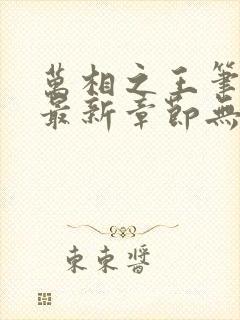 萬相之王筆
最新章節無
東東醬